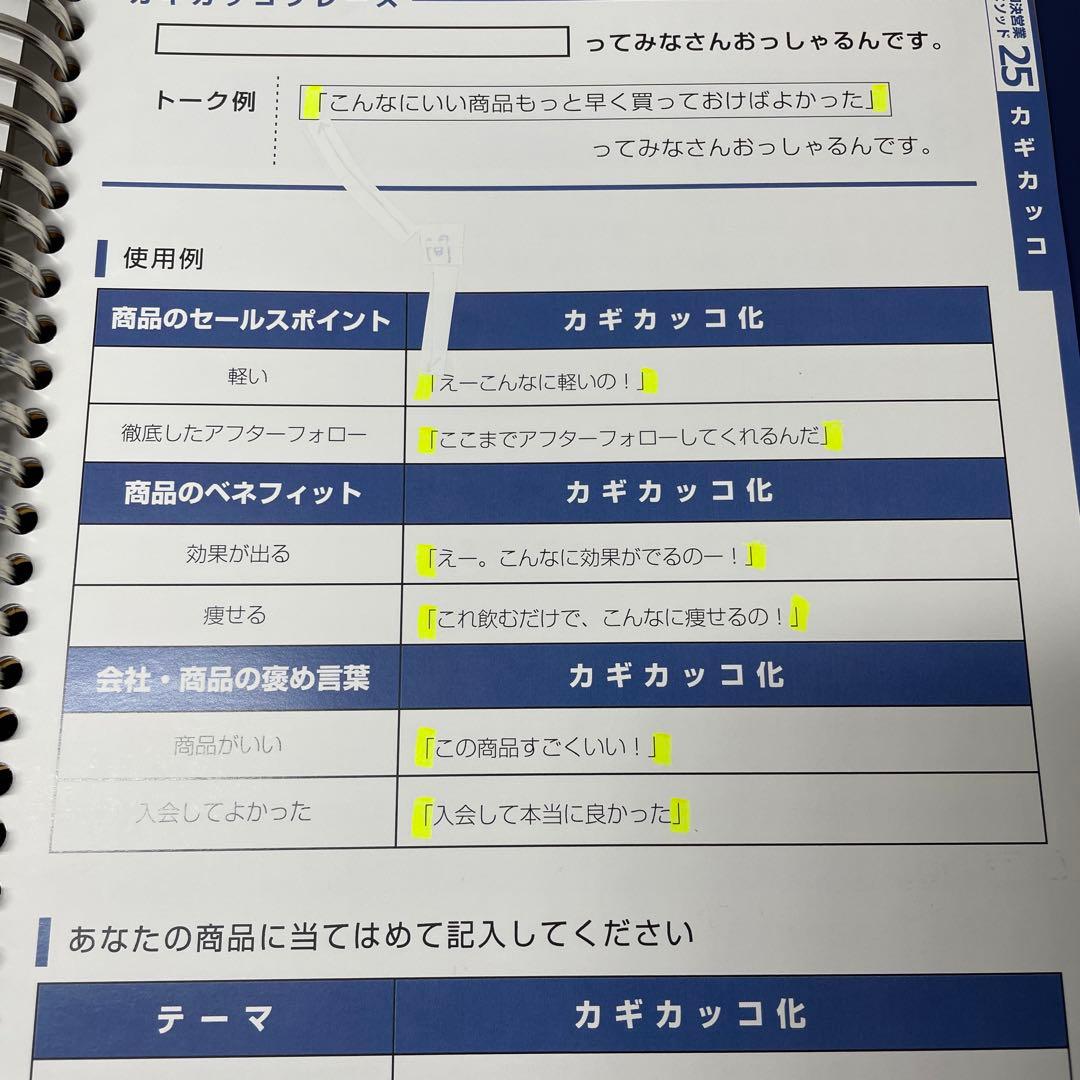 カギカッコフレーズ
ってみなさんおっしゃるんです。
トーク例
「こんなにいい商品もっと早く買っておけばよかった」
ってみなさんおっしゃるんです。
使用例
商品のセールスポイント カギカッコ化
軽い 「えーこんなに軽いの！」
徹底したアフターフォロー 「ここまでアフターフォローしてくれるんだ」
商品のベネフィット カギカッコ化
効果が出る 「えー。こんなに効果がでるのー！」
痩せる 「これ飲むだけで、こんなに痩せるの！」
会社・商品の褒め言葉 カギカッコ化
商品がいい 「この商品すごくいい！」
入会してよかった 「入会して本当に良かった」
あなたの商品に当てはめて記入してください
テーマ カギカッコ化
決営業
ソッド
25
カギカッコ